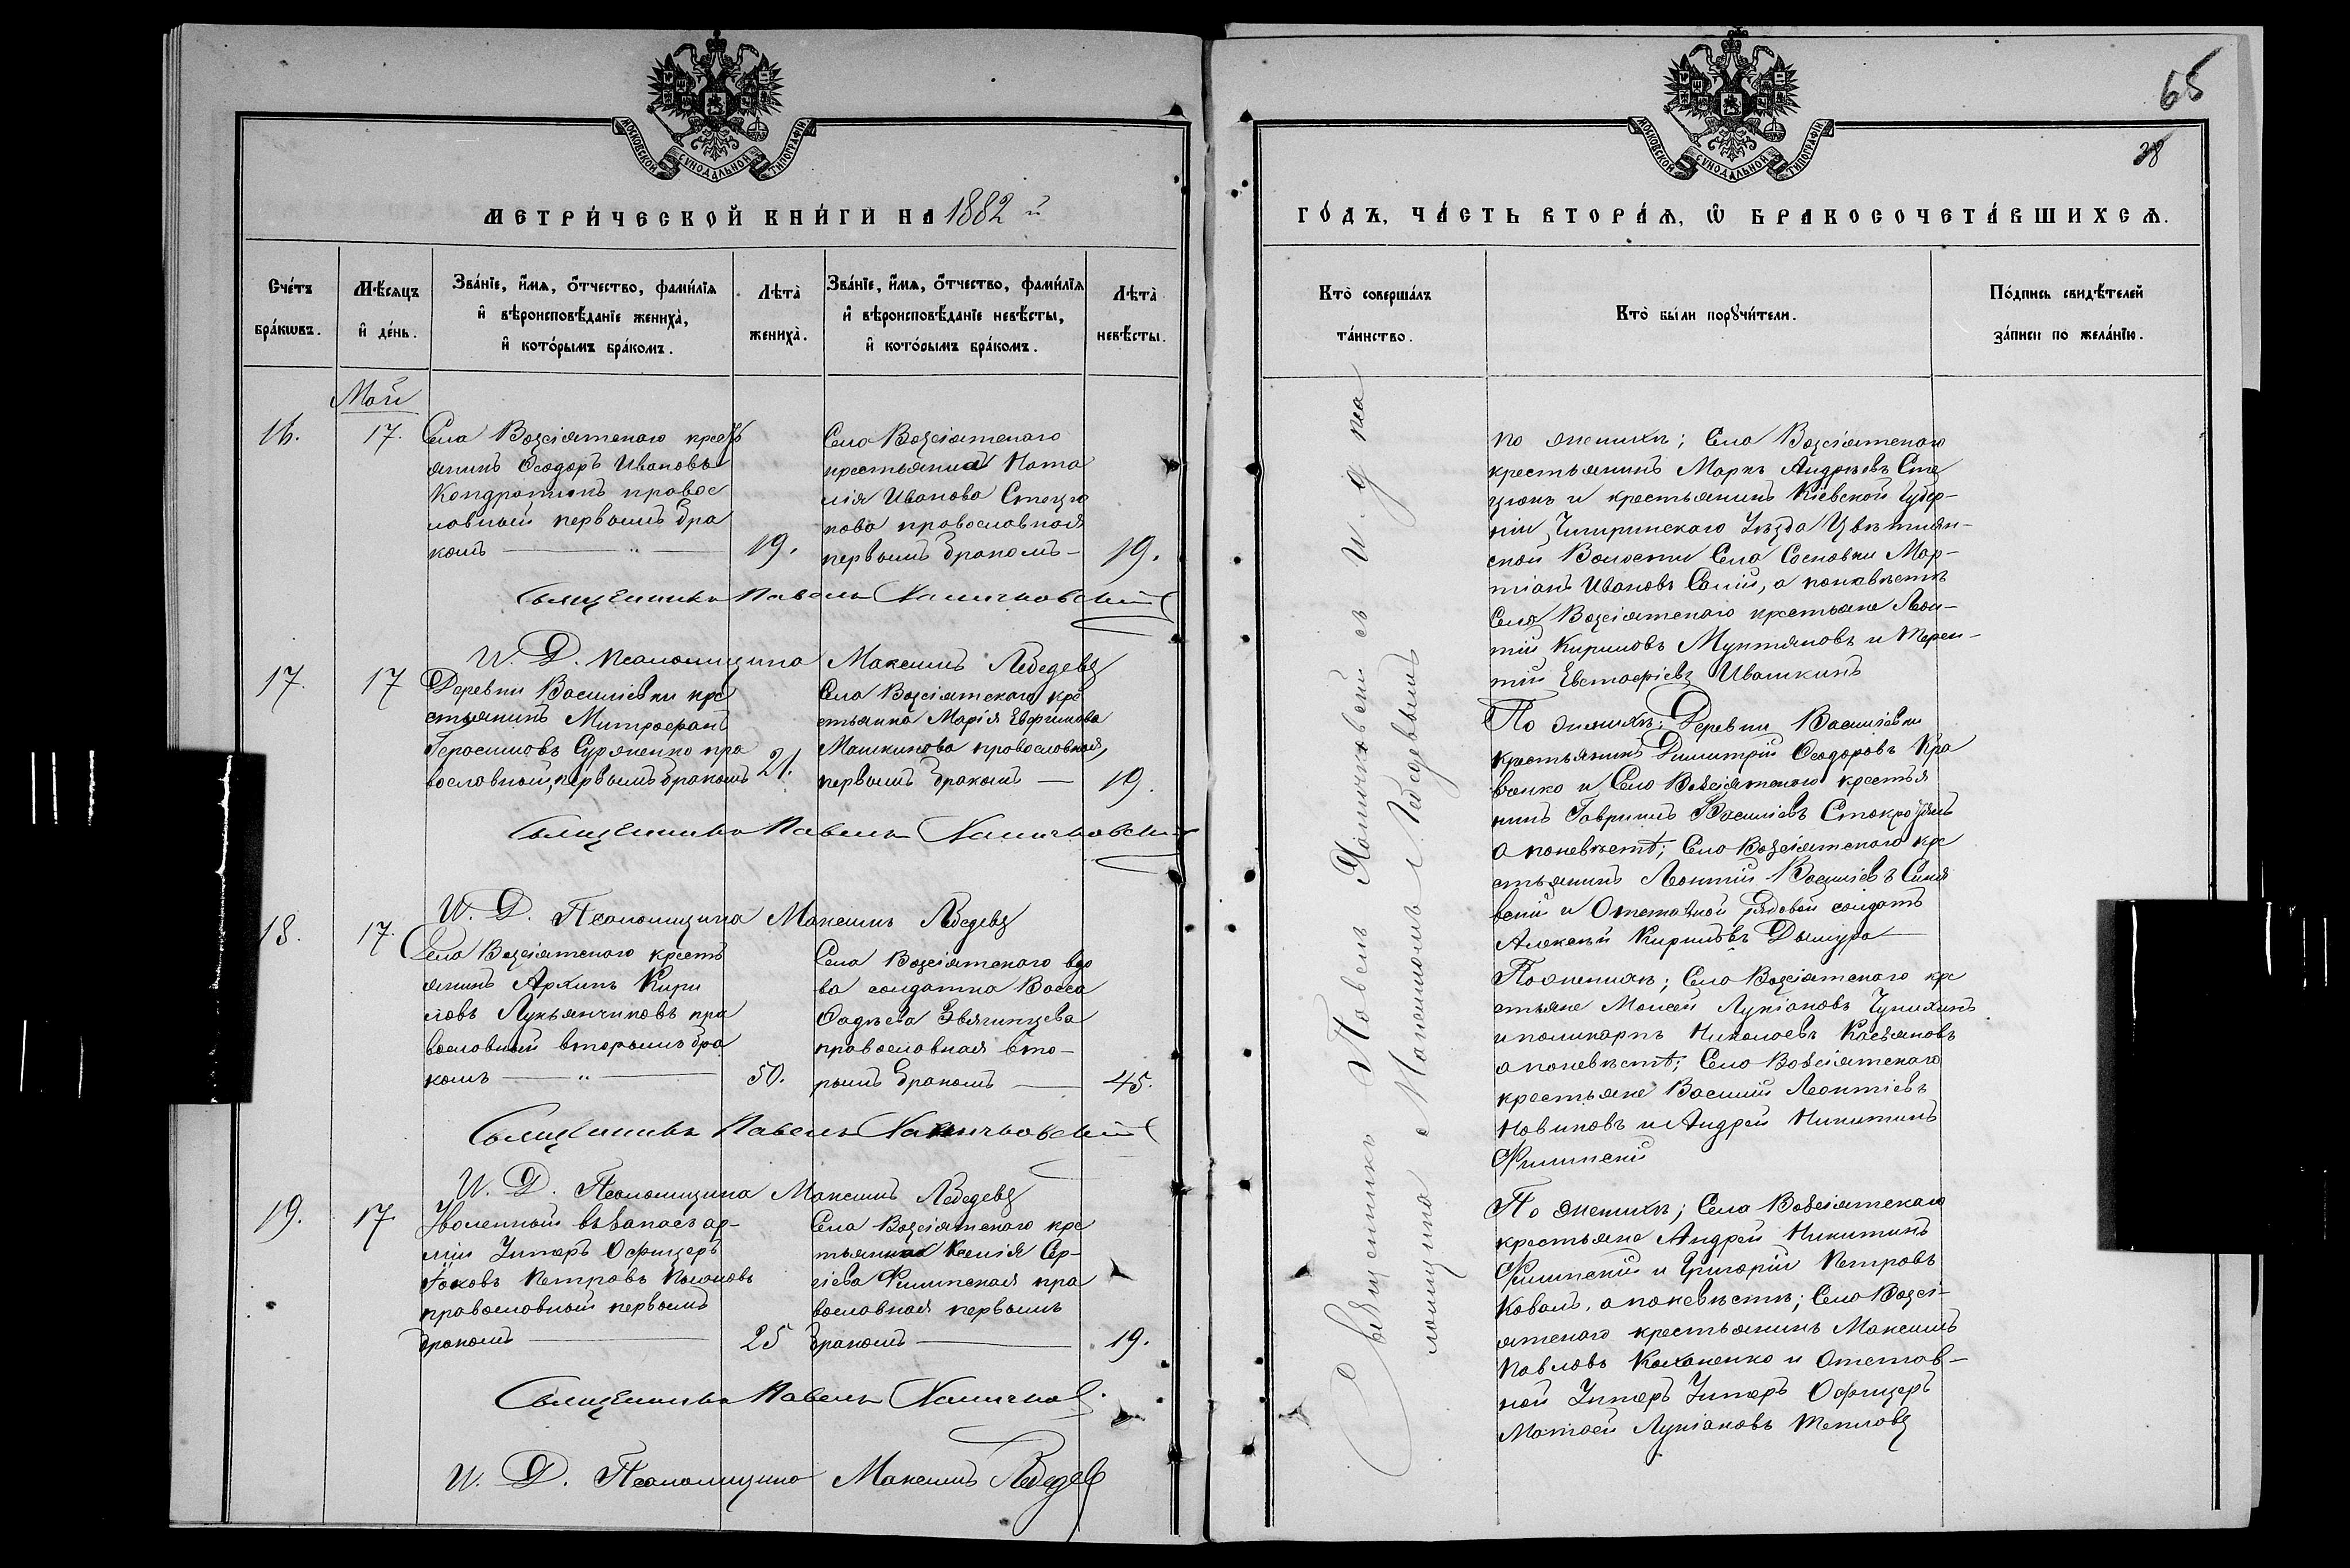 МОСКОВСКОЙ СѴНОДАЛЬНОЙ ТИПОГРАФІИ
МЕТРИ́ЧЕСКОЙ КНИ́ГИ НА 1882 й
Сче́тъ бра́кѡвъ.
Мѣ́сяцъ и҆ де́нь.
Зва́нїе, и҆́мѧ, ѻ҆́тчество, фамѝлїѧ
и҆ вѣроисповѣ́данїе жениха̀,
и҆ кото́рымъ бра́комъ.
Лѣта̀ жениха̀.
Зва́нїе, и҆́мѧ, ѻ҆́тчество, фамѝлїѧ
и҆ вѣроисповѣ́данїе невѣ́сты,
и҆ кото́рымъ бра́комъ.
Лѣта̀ невѣ́сты.
Май
16.
17.
Села Возсіятскаго кресть
янинъ Ѳеодоръ Ивановъ
Кондратюкъ правос
лавный первымъ бра
комъ — " —
19.
Села Возсіятскаго
крестьянка Ната
лія Иванова Стецю
кова православная
первымъ бракомъ —
19.
Священникъ Павелъ
И. Д. Псаломщика Максимъ Лебедевъ
17.
17
Деревни Василіевки кре
стьянинъ Митрофанъ
Герасимовъ Суржненко пра
вославный, первымъ бракомъ
21.
Села Возсіятскаго кре
стьянка Марія Евфимова
Машкинова православная,
первымъ бракомъ —
19.
Священникъ Павелъ
И. Д. Псаломщика Максимъ Лебедевъ
18.
17.
Села Возсіятскаго кресть
янинъ Архипъ Кири
ловъ Лукьянчиковъ пра
вославный вторымъ бра
комъ — " —
50.
Села Возсіятскаго вдо
ва солдатка Васса
Фадѣева Звягинцева
православная вто-
рымъ бракомъ —
45.
Священникъ Павелъ
И. Д. Псаломщика Максимъ Лебедевъ
19.
17.
Уволенный въ запасъ ар-
міи Унтеръ Офицеръ
Яковъ Петровъ
православный первымъ
бракомъ —
25
Села Возсіятскаго кре
тьянка Ксенія Сер-
гіева Филипская пра
вославная первымъ
бракомъ —
19.
Священникъ Павелъ
И. Д. Псаломщика Максимъ Лебедевъ
65
38
МОСКОВСКОЙ СѴНОДАЛЬНОЙ ТИПОГРАФІИ
ГО́ДЪ, ЧА́СТЬ ВТОРА́Ѧ, Ѽ БРАКОСОЧЕТА́ВШИХСѦ.
Кто̀ соверша́лъ та́инство.
Кто̀ бы́ли порꙋчи́тели.
По́дпись свидѣ́телей
за́писи по жела́нїю.
Священникъ Павелъ съ и. д. пса
ломщика Максимомъ Лебедевымъ
по женихѣ; Села Возсіятскаго
крестьянинъ Маркъ Андреевъ Сте
цюкъ и крестьянинъ Кіевской Губер-
ніи Чигиринскаго Уѣзда Цвѣтнян-
ской Волости Села Сосновки Мар-
тіанъ Ивановъ а по невѣстѣ
Села Возсіятскаго крестьяне Леон-
тій Кириловъ Мунтяновъ и Терен-
тій Евстафіевъ Ивашкинъ
По женихѣ: Деревни Василіевки
крестьянинъ Димитрій Ѳеодоровъ Кра
вченко и Села Возсіятскаго крестья
нинъ Гавріилъ Василіевъ
а по невѣстѣ; Села Возсіятскаго кре
стьянинъ Леонтій Василіевъ Синя
вскій и Отставной рядовой солдатъ
Алексѣй Кириловъ Дышура
По женихѣ; Села Возсіятскаго кре
стьяне Моисей Лукіановъ Чунихинъ
и поликарпъ Николаевъ Касьяновъ
а по невѣстѣ; Села Возсіятскаго
крестьяне Василій Леонтіевъ
Новиковъ и Андрей Никитинъ
Филипскій
По женихѣ; Села Возсіятскаго
крестьяне Андрей Никитинъ
Филипскій и Григорій Петровъ
Коваль, а по невѣстѣ; Села Возсі-
ятскаго крестьянинъ Максимъ
Павловъ Коханенко и Отстав-
ной Унтеръ Унтеръ Офицеръ
Матвей Лукіановъ Тепловъ